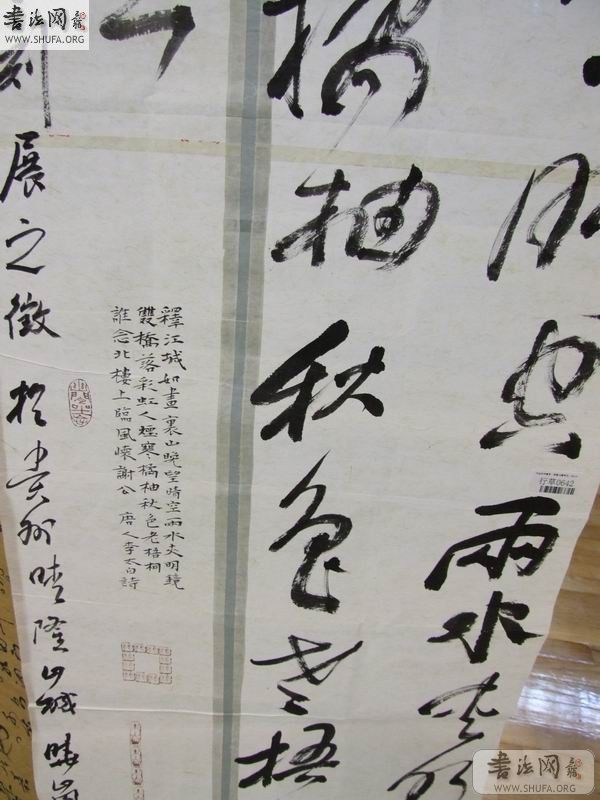 書法网
WWW.SHUFA.ORG
晴空兩水夾明
行草0642
橘柚秋色老梧
釋江城如畫裏山晚望晴空兩水夾明鏡
雙橋落彩虹人煙寒橘柚秋色老梧桐
誰念北樓上臨風懷謝公 唐人李太白詩
展之徵於貴州晴隆山城晴嵐
書法网
WWW.SHUFA.ORG